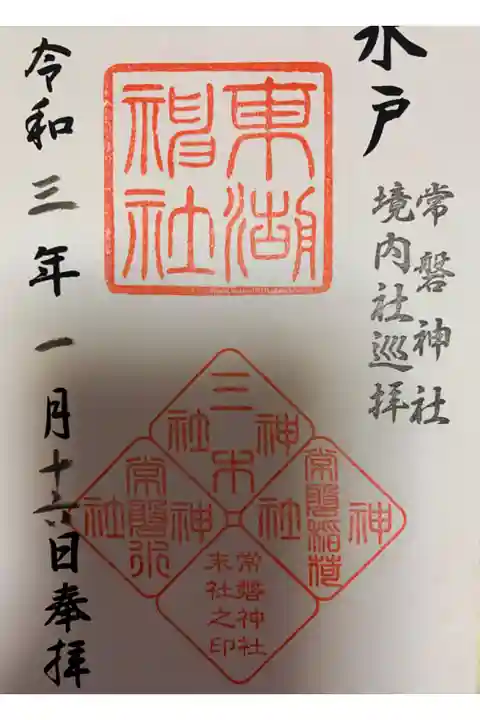 水戸
常磐神社
境内社巡拝
東湖
神社
三木
神社
常磐稲荷
神社
常磐水
神社
常磐神社
末社之印
令和三年一月十六日奉拝